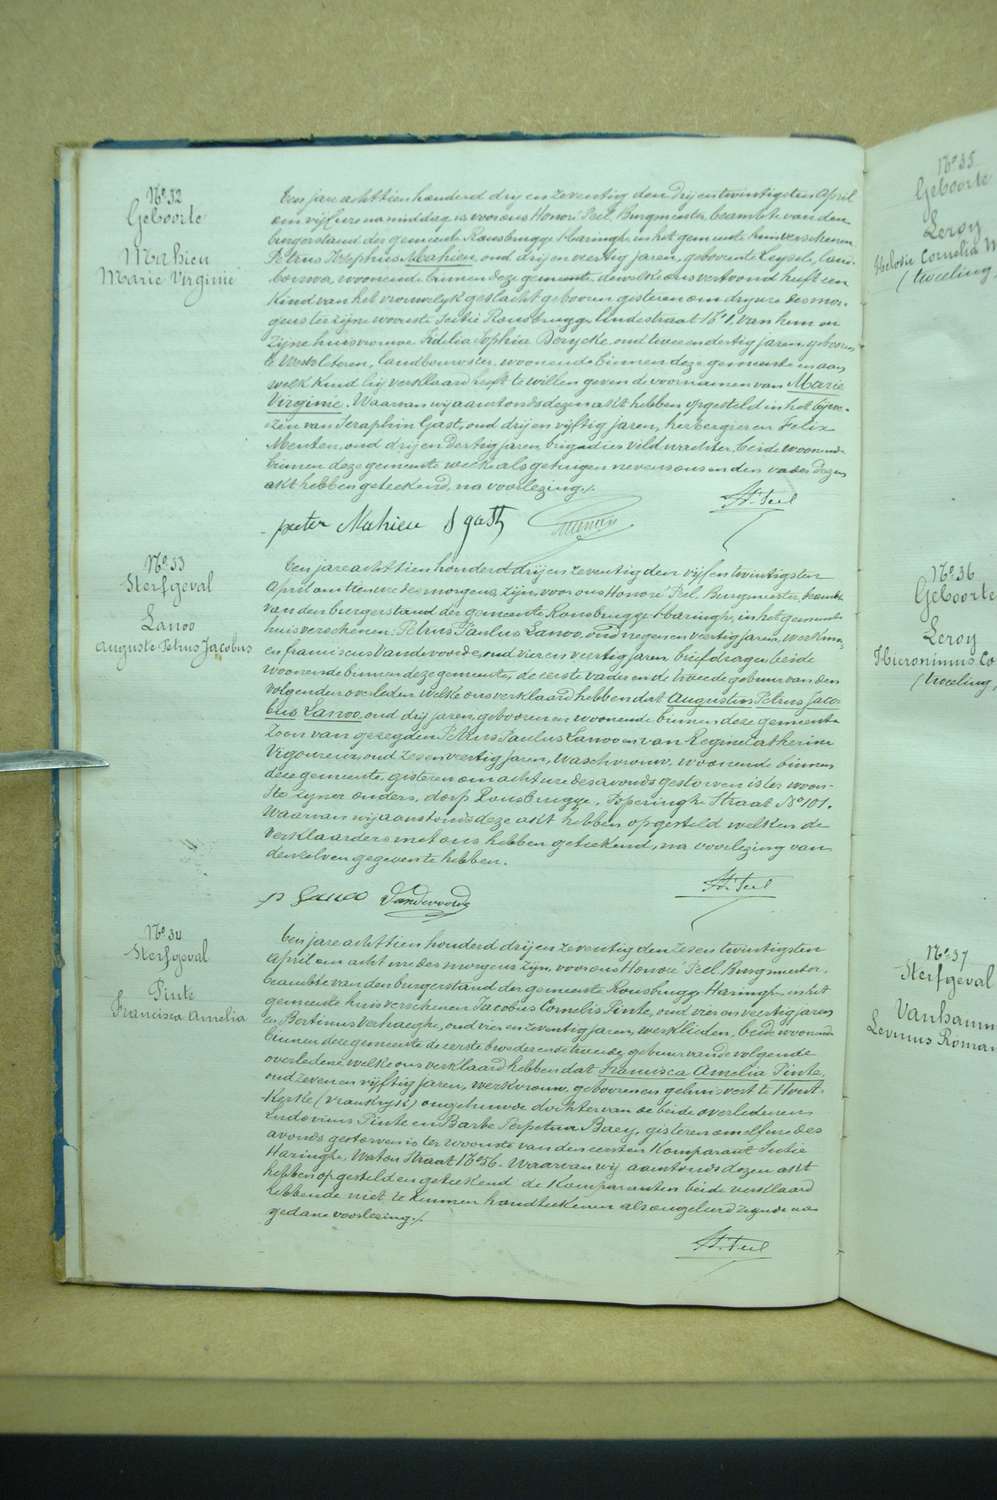 No 32
Geboorte
Mathieu
Marie Virginie
Ten jare achttien honderd drij en zeventig den drij en twintigsten April
om vijf ure namiddag is voor ons Honoré Teel Burgmeester beambte van den
burgerstand der gemeente Rousbrugge Haringhe in het gemeente huis verschenen
Petrus Josephus Mahieu, oud drij en veertig jaren, geboren te Leysele, land-
bouwer, woonende binnen deze gemeente, dewelke ons vertoond heeft een
Kind van het vrouwelijk geslacht geboren gisteren om drij ure des mor-
gens ter zijne woonste Sectie Rousbrugge Lindestraat No 1, van hem en
zijne huisvrouwe Fidelia Sophia Derycke oud twee en dertig jaren, geboren
te Westvleteren, landbouwster, woonende binnen deze gemeente en aan
welk kind hij verklaard heeft te willen geven de voornamen van Marie
Virginie. Waarvan wij aanstonds dezen akt hebben opgesteld in het bijwe-
zen van Seraphin Gast, oud drij en vijftig jaren, herbergier en Felix
Menten, oud drij en dertig jaren, brigadier veldwachter, beide woonende
binnen deze gemeente welke als getuigen nevens ons en den vader dezen
akt hebben geteekend, na voorlezing./.
peeter Mahieu S gast Menten
H. Teel
No 33
Sterfgeval
Lanoo
Auguste Petrus Jacobus
Ten jare achttien honderd drij en zeventig den vijf en twintigsten
April om tien ure des morgens, zijn voor ons Honoré Teel Burgmeester, beambte
van den burgerstand der gemeente Rousbrugge Haringhe, in het gemeente
huis verschenen Petrus Paulus Lanoo, oud negen en veertig jaren, werkman
en franciscus Vandevoorde, oud vier en veertig jaren briefdrager beide
woonende binnen deze gemeente, de eerste vader en de tweede gebuur van den
volgenden overleden welke ons verklaard hebben dat Augustus Petrus Jaco-
bus Lanoo, oud drij jaren, geboren en woonende binnen deze gemeente
Zoon van gezegden Petrus Paulus Lanoo en van Regine Catherine
Vigoureux, oud zes en veertig jaren, waschvrouw, woonende binnen
deze gemeente, gisteren om acht ure des avonds gestorven is ter woon-
ste zijner ouders, dorp Rousbrugge, Poperinghe Straat No 101.
Waarvan wij aanstonds deze akt hebben opgesteld welken de
verklaarders met ons hebben geteekend, na voorlezing van
denzelven gegeven te hebben.
p Lanoo Vandevoorde
H. Teel
No 34
Sterfgeval
Pinte
Francisca Amelia
Ten jare achttien honderd drij en zeventig den zes en twintigsten
April om acht ure des morgens zijn, voor ons Honoré Teel Burgmeester,
beambte van den burgerstand der gemeente Rousbrugge Haringhe in het
gemeente huis verschenen Jacobus Cornelis Pinte, oud vier en veertig jaren
en Bertinus Verhaeghe, oud vier en zeventig jaren, werklieden, beide woonende
binnen deze gemeente de eerste broeder en de tweede gebuur van de volgende
overledene welke ons verklaard hebben dat Francisca Amelia Pinte,
oud zeven en vijftig jaren, werkvrouw, geboren en gehuisvest te Hout-
Kerke (Vrankrijk) ongehuwde dochter van de beide overledenen
Ludovicus Pinte en Barbe Perpetua Baey, gisteren om elf ure des
avonds gestorven is ter woonste van den eersten Komparant Sectie
Haringhe, Watou Straat No 56. Waarvan wij aanstonds dezen akt
hebben opgesteld en geteekend de Komparanten beide verklaard
hebbende niet te kunnen handteekenen als ongeleerd zijnde na
gedane voorlezing./.
H. Teel
No 35
Geboorte
Leroy
Cornelia
(tweeling
No 36
Geboorte
Leroy
Hieronimus Co
(tweeling
No 37
Sterfgeval
Vanhamm
Levinus Roman